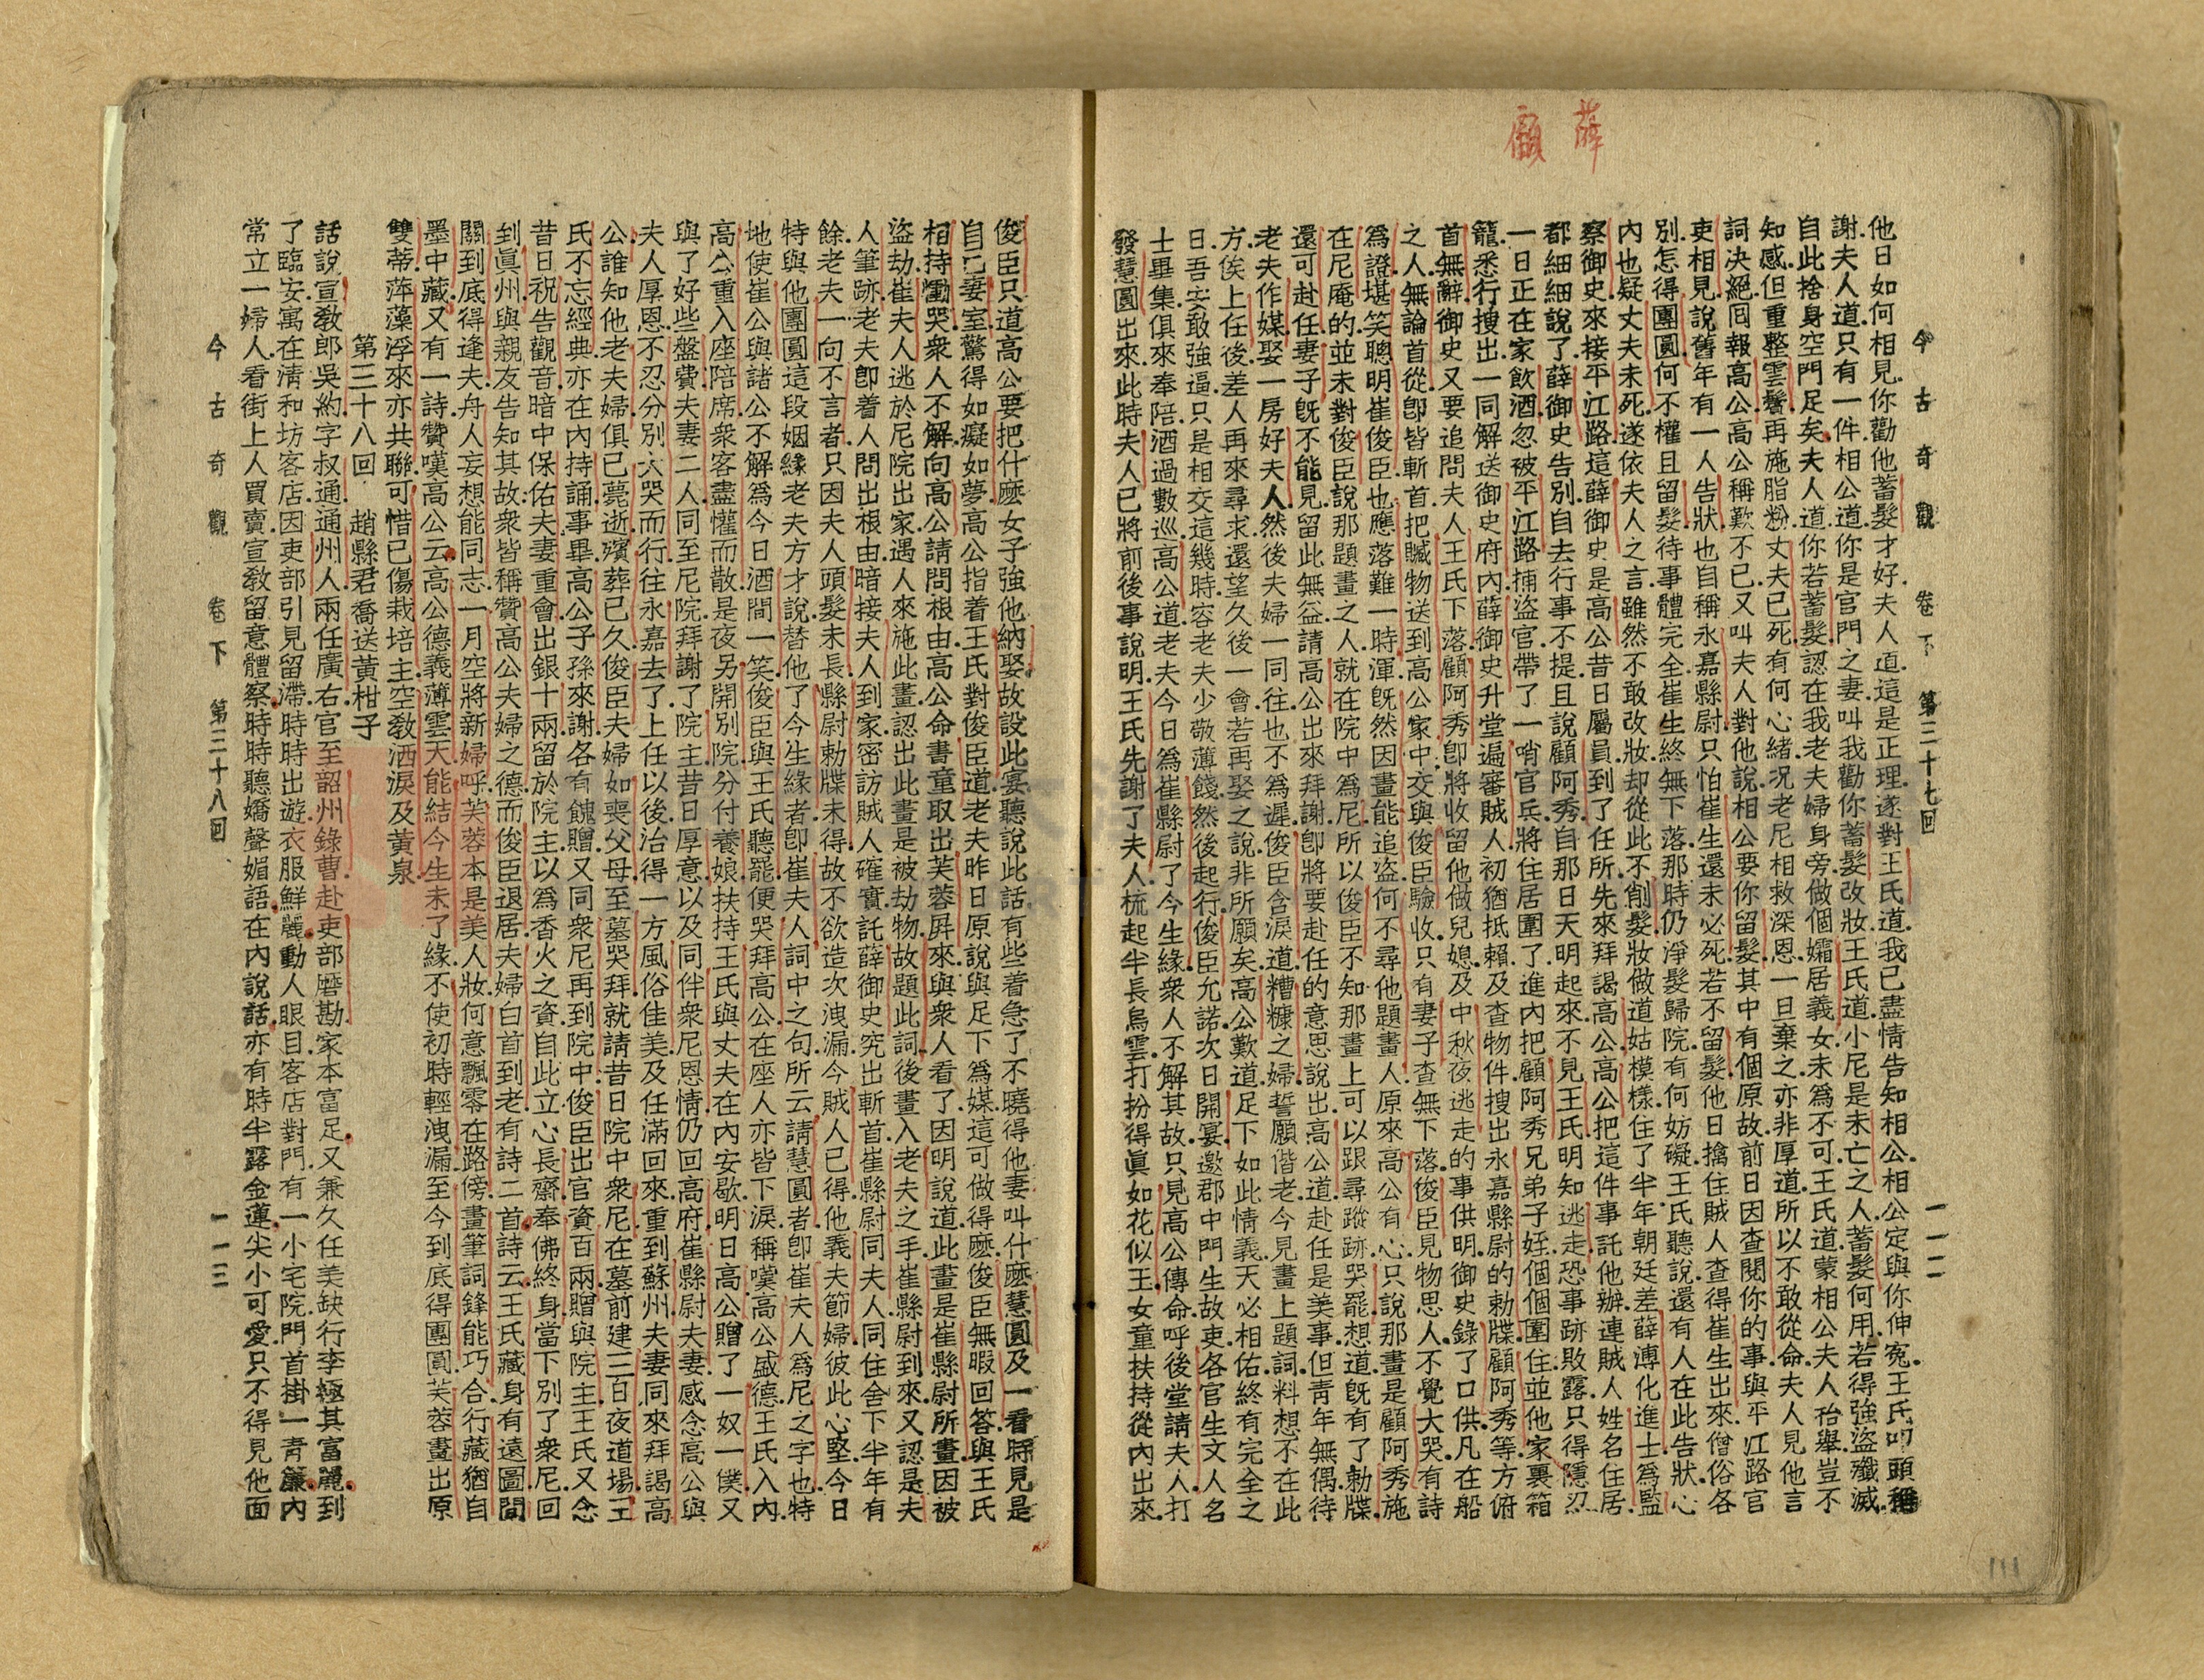 薛
顧
今古奇觀 卷下 第三十七回 一一二
他日如何相見你勸他蓄髮才好.夫人道.這是正理.遂對王氏道.我已盡情告知相公.相公定與你伸冤.王氏叩頭稱
謝.夫人道.只有一件.相公道.你是官門之妻.叫我勸你蓄髮改妝.王氏道.小尼是未亡之人.蓄髮何用.若得強盜殲滅.
自此捨身空門足矣.夫人道.你若蓄髮.認在我老夫婦身旁.做個孀居義女.未爲不可.王氏道.蒙相公夫人抬舉.豈不
知感.但重整雲鬢.再施脂粉.丈夫已死.有何心緒.况老尼相救深恩.一旦棄之.亦非厚道.所以不敢從命.夫人見他言
詞决絕.囘報高公.高公稱歎不已.又叫夫人對他說.相公要你留髮.其中有個原故.前日因查閱你的事.與平江路官
吏相見.說舊年有一人告狀.也自稱永嘉縣尉.只怕崔生還未必死.若不留髮.他日擒住賊人.查得崔生出來.僧俗各
別.怎得團圓.何不權且留髮.待事體完全.崔生終無下落.那時仍淨髮歸院.有何妨礙.王氏聽說還有人在此告狀.心
內也疑丈夫未死.遂依夫人之言.雖然不敢改妝.却從此不削髮.妝做道姑模樣.住了半年.朝廷差薛溥化進士爲監
察御史.來接平江路.這薛御史是高公昔日屬員.到了任所.先來拜謁高公.高公把這件事託他辦.連賊人姓名住居
都細細說了.薛御史告別.自去行事不提.且說顧阿秀自那日天明起來.不見王氏.明知逃走.恐事跡敗露.只得隱忍
一日.正在家飲酒.忽被平江路捕盜官.帶了一哨官兵.將住居圍了.進內把顧阿秀兄弟子姪.個個圍住.並他家裏箱
籠.悉行搜出.一同解送御史府內.薛御史升堂.遍審賊人.初猶抵賴.及查物件.搜出永嘉縣尉的勅牒.顧阿秀等方俯
首無辭.御史又要追問夫人王氏下落.顧阿秀卽將收留他做兒媳.及中秋夜逃走的事供明.御史錄了口供.凡在船
之人.無論首從.卽皆斬首.把贓物送到高公家中.交與俊臣驗收.只有妻子查無下落.俊臣見物思人.不覺大哭.有詩
爲證.堪笑聰明崔俊臣.也應落難一時渾.旣然因畫能追盜.何不尋他題畫人.原來高公有心.只說那畫是顧阿秀施
在尼庵的.並未對俊臣說.那題畫之人.就在院中爲尼.所以俊臣不知.那畫上可以跟尋蹤跡.哭罷.想道.旣有了勅牒.
還可赴任.妻子旣不能見.留此無益.請高公出來拜謝.卽將要赴任的意思說出.高公道.赴任是美事.但青年無偶.待
老夫作媒.娶一房好夫人.然後夫婦一同往也不爲遲.俊臣含淚道.糟糠之婦.誓願偕老.今見畫上題詞.料想不在此
方.俟上任後.差人再來尋求.還望久後一會.若再娶之說.非所願矣.高公歎道.足下如此情義.天必相佑.終有完全之
日.吾安敢強逼.只是相交這幾時.容老夫少敬薄餞.然後起行.俊臣允諾.次日開宴.邀郡中門生故吏.各官生文人名
士畢集.俱來奉陪.酒過數巡.高公道.老夫今日爲崔縣尉了今生緣.衆人不解其故.只見高公傳命.呼後堂請夫人打
發慧圓出來.此時夫人已將前後事說明.王氏先謝了夫人.梳起半長烏雲.打扮得眞如花似玉.女童扶持.從內出來.
俊臣只道高公要把什麽女子強他納娶.故設此宴.聽說此話.有些着急了.不曉得他妻叫什麽慧圓.及一看時.見是
自己妻室.驚得如癡如夢.高公指着王氏.對俊臣道.老夫昨日原說與足下爲媒.這可做得麽.俊臣無暇回答.與王氏
相持慟哭.衆人不解.向高公請問根由.高公命書童取出芙蓉屏來與衆人看了.因明說道.此畫是崔縣尉所畫.因被
盜劫.崔夫人逃於尼院出家.遇人來施此畫.認出此畫是被劫物.故題此詞.後畫入老夫之手.崔縣尉到來.又認是夫
人筆跡.老夫卽着人問出根由.暗接夫人到家.密訪賊人確實.託薛御史究出斬首.崔縣尉同夫人同住舍下半年有
餘.老夫一向不言者.只因夫人頭髮未長.縣尉勅牒未得.故不欲造次洩漏.今賊人已得.他義夫節婦.彼此心堅.今日
特與他團圓.這段姻緣.老夫方才說替他了今生緣者.卽崔夫人詞中之句.所云請慧圓者.卽崔夫人爲尼之字也.特
地使崔公與諸公不解.爲今日酒間一笑.俊臣與王氏聽罷.便哭拜高公.在座人亦皆下淚.稱嘆高公盛德.王氏入內.
高公重入座陪席.衆客盡懽而散.是夜另開別院.分付養娘扶持王氏與丈夫在內安歇.明日高公贈了一奴一僕.又
與了好些盤費.夫妻二人同至尼院.拜謝了院主昔日厚意.以及同伴衆尼恩情.仍回高府.崔縣尉夫妻感念高公與
夫人厚恩.不忍分別.大哭而行.往永嘉去了.上任以後.治得一方風俗佳美.及任滿回來.重到蘇州.夫妻同來拜謁高
公.誰知他老夫婦俱已薨逝.殯葬已久.俊臣夫婦如喪父母.至墓哭拜.就請昔日院中衆尼.在墓前建三日夜道場.王
氏不忘經典.亦在內持誦.事畢.高公子孫來謝.各有餽贈.又同衆尼再到院中.俊臣出官資百兩.贈與院主.王氏又念
昔日祝告觀音.暗中保佑夫妻重會.出銀十兩.留於院主.以爲香火之資.自此立心長齋奉佛終身.當下別了衆尼.回
到眞州.與親友告知其故.衆皆稱贊高公夫婦之德.而俊臣退居.夫婦白首到老.有詩二首.詩云.王氏藏身有遠圖.間
關到底得逢夫.舟人妄想能同志.一月空將新婦呼.芙蓉本是美人妝.何意飄零在路傍.畫筆詞鋒能巧合.行藏猶自
墨中藏.又有一詩.贊嘆高公云.高公德義薄雲天.能結今生未了緣.不使初時輕洩漏.至今到底得團圓.芙蓉畫出原
雙蒂.萍藻浮來亦共聯.可惜已傷栽培主.空敎洒淚及黃泉.
第三十八回 趙縣君喬送黃柑子
話說宣敎郎吳約.字叔通.通州人.兩任廣右官.至韶州錄曹.赴吏部磨勘.家本富足.又兼久任美缺.行李極其富麗.到
了臨安.寓在淸和坊客店.因吏部引見留滯.時時出遊.衣服鮮麗.動人眼目.客店對門.有一小宅院.門首掛一青簾.內
常立一婦人.看街上人買賣.宣敎留意體察.時時聽嬌聲媚語.在內說話.亦有時半露金蓮.尖小可愛.只不得見他面
今古奇觀 卷下 第三十八回 一一三
111